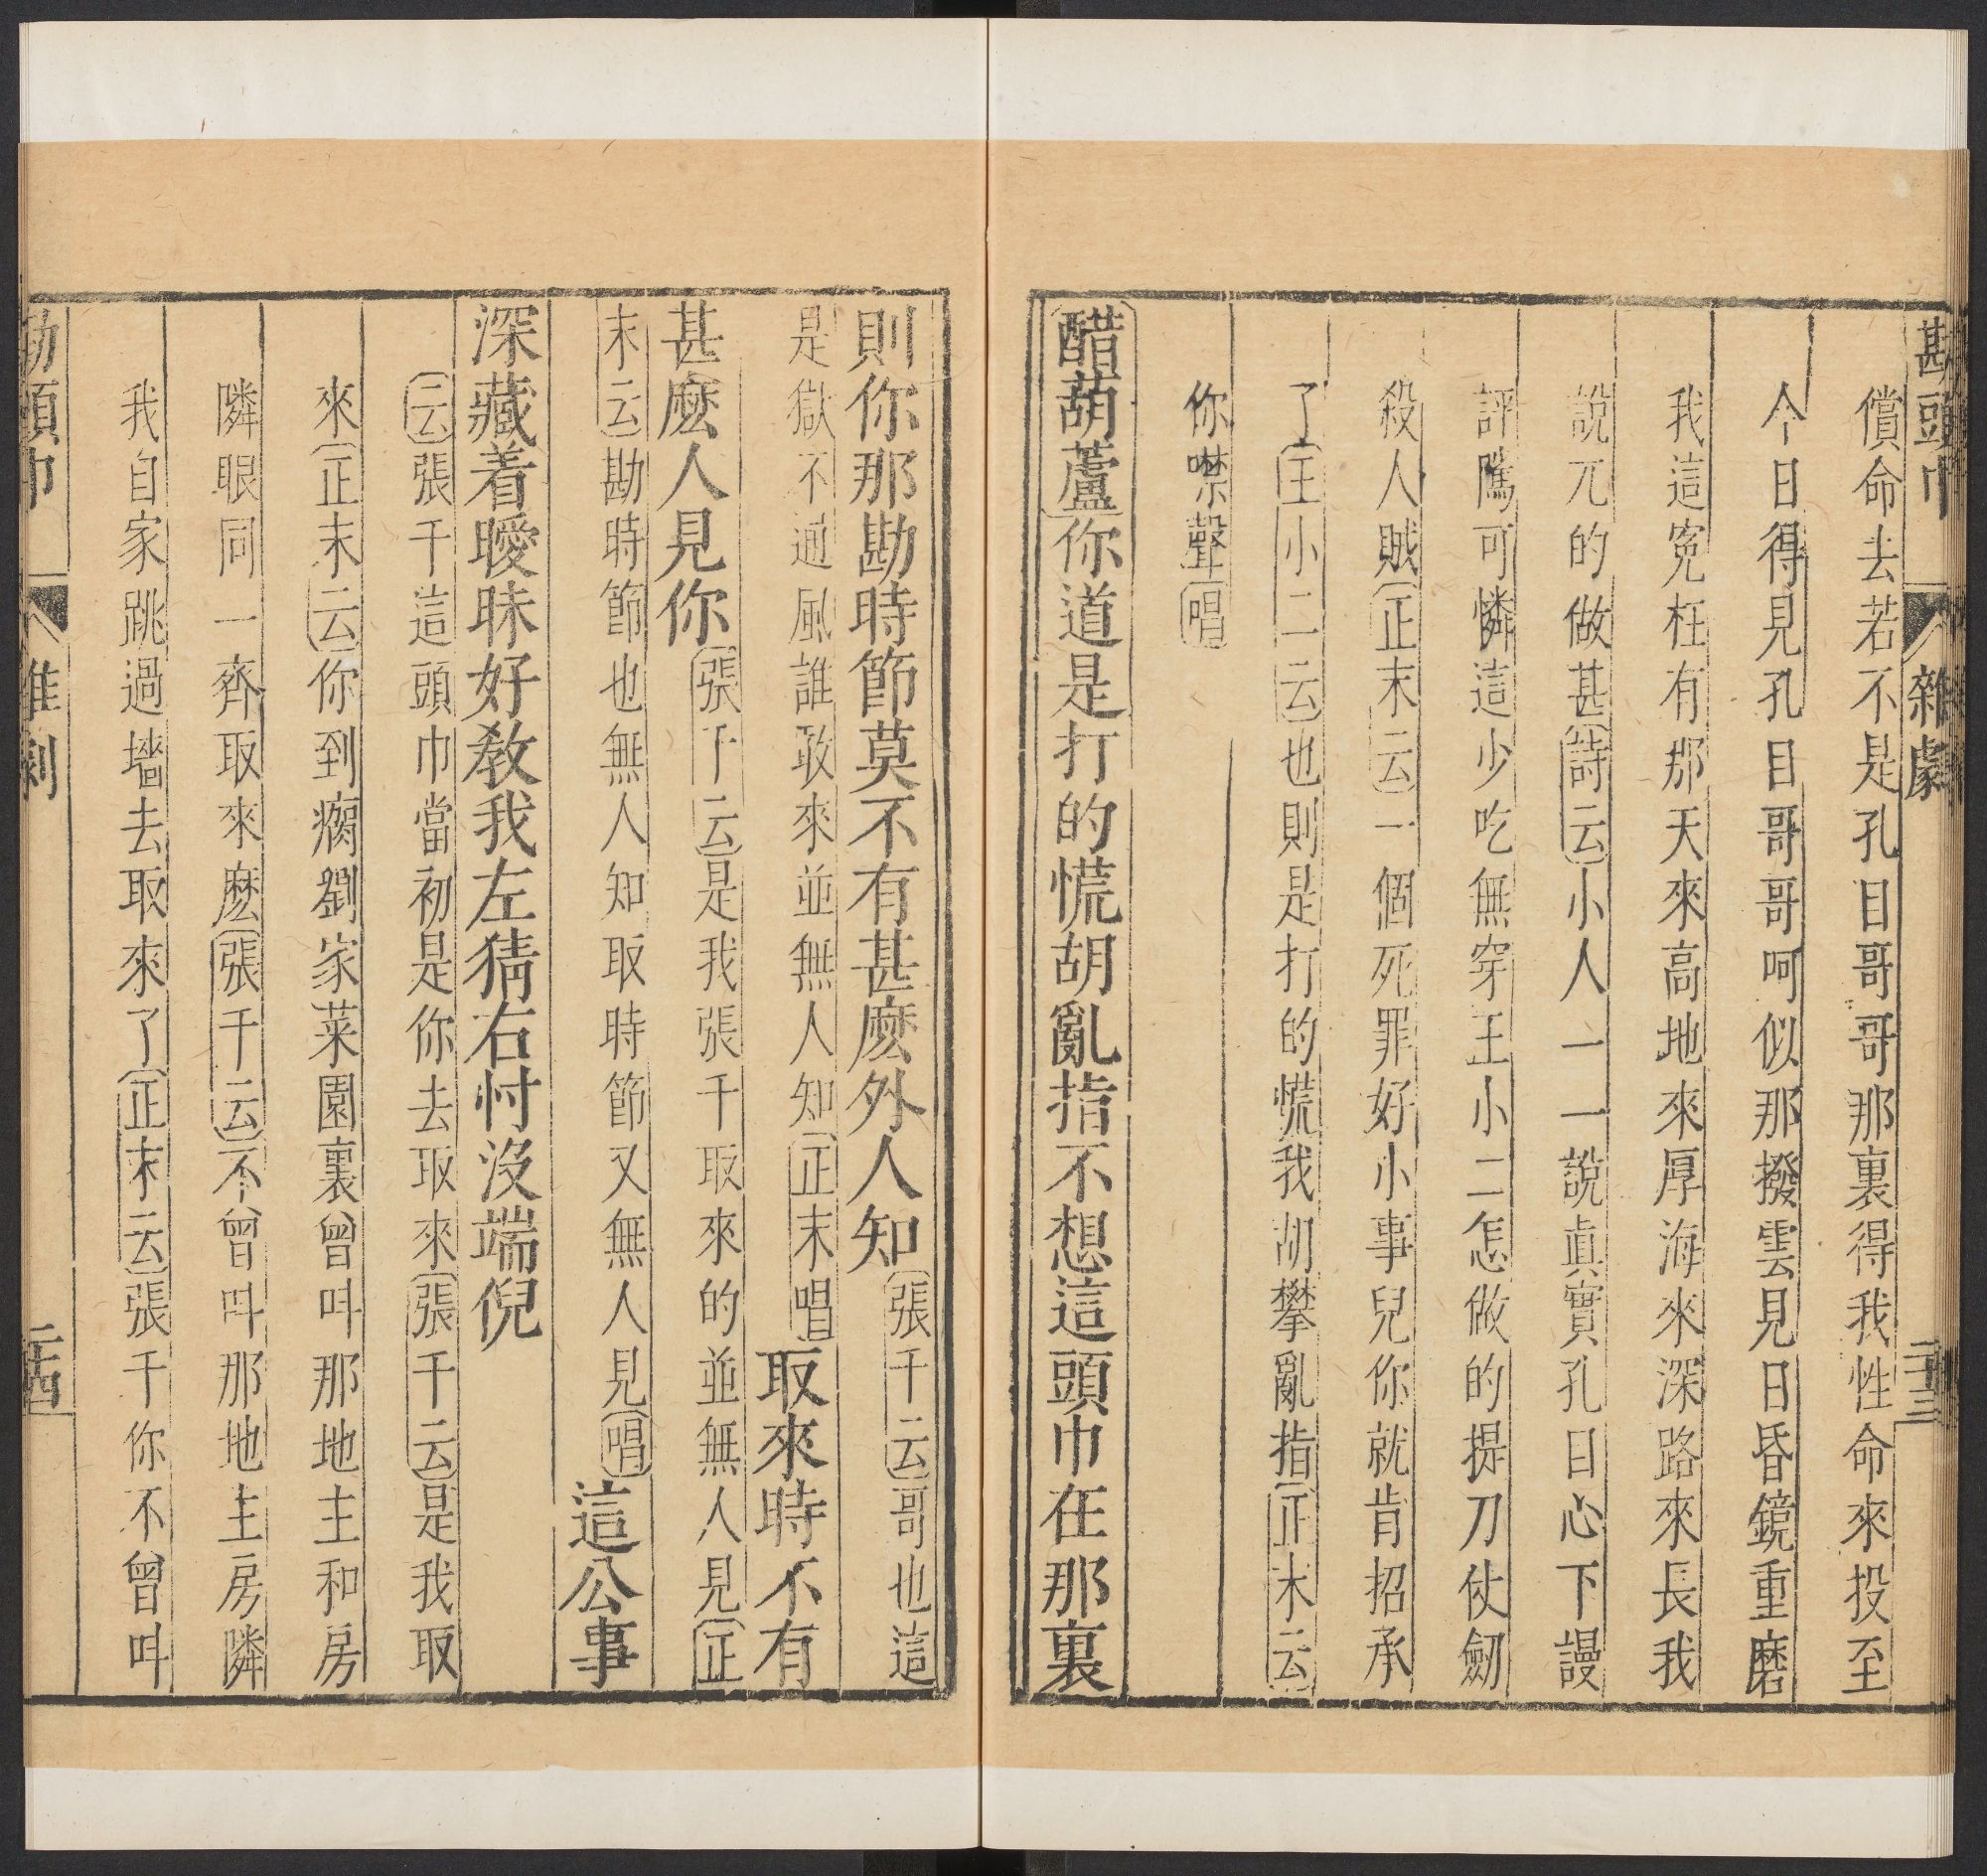 勘頭巾 雜劇 二十三
償命去若不是孔目哥哥那裏得我性命來投至
今日得見孔目哥哥呵似那撥雲見日昏鏡重磨
我這寃枉有那天來高地來厚海來深路來長我
說兀的做甚詩云小人一一說眞實孔目心下謾
評隲可憐這少吃無穿王小二怎做的提刀仗劒
殺人賊正末云一個死罪好小事兒你就肯招承
了王小二云也則是打的慌我胡攀亂指正末云
你噤聲唱
醋葫蘆你道是打的慌胡亂指不想這頭巾在那裏
則你那勘時節莫不有甚麼外人知張千云哥也這
是獄不通風誰敢來並無人知正末唱取來時不有
甚麼人見你張千云是我張千取來的並無人見正
末云勘時節也無人知取時節又無人見唱這公事
深藏着曖昧好教我左猜右忖沒端倪
云張千這頭巾當初是你去取來張千云是我取
來正末云你到瘸劉家菜園裏曾叫那地主和房
隣眼同一齊取來麽張千云不曾叫那地主房隣
我自家跳過墻去取來了正末云張千你不曾叫
勘頭巾 雜劇 二十四